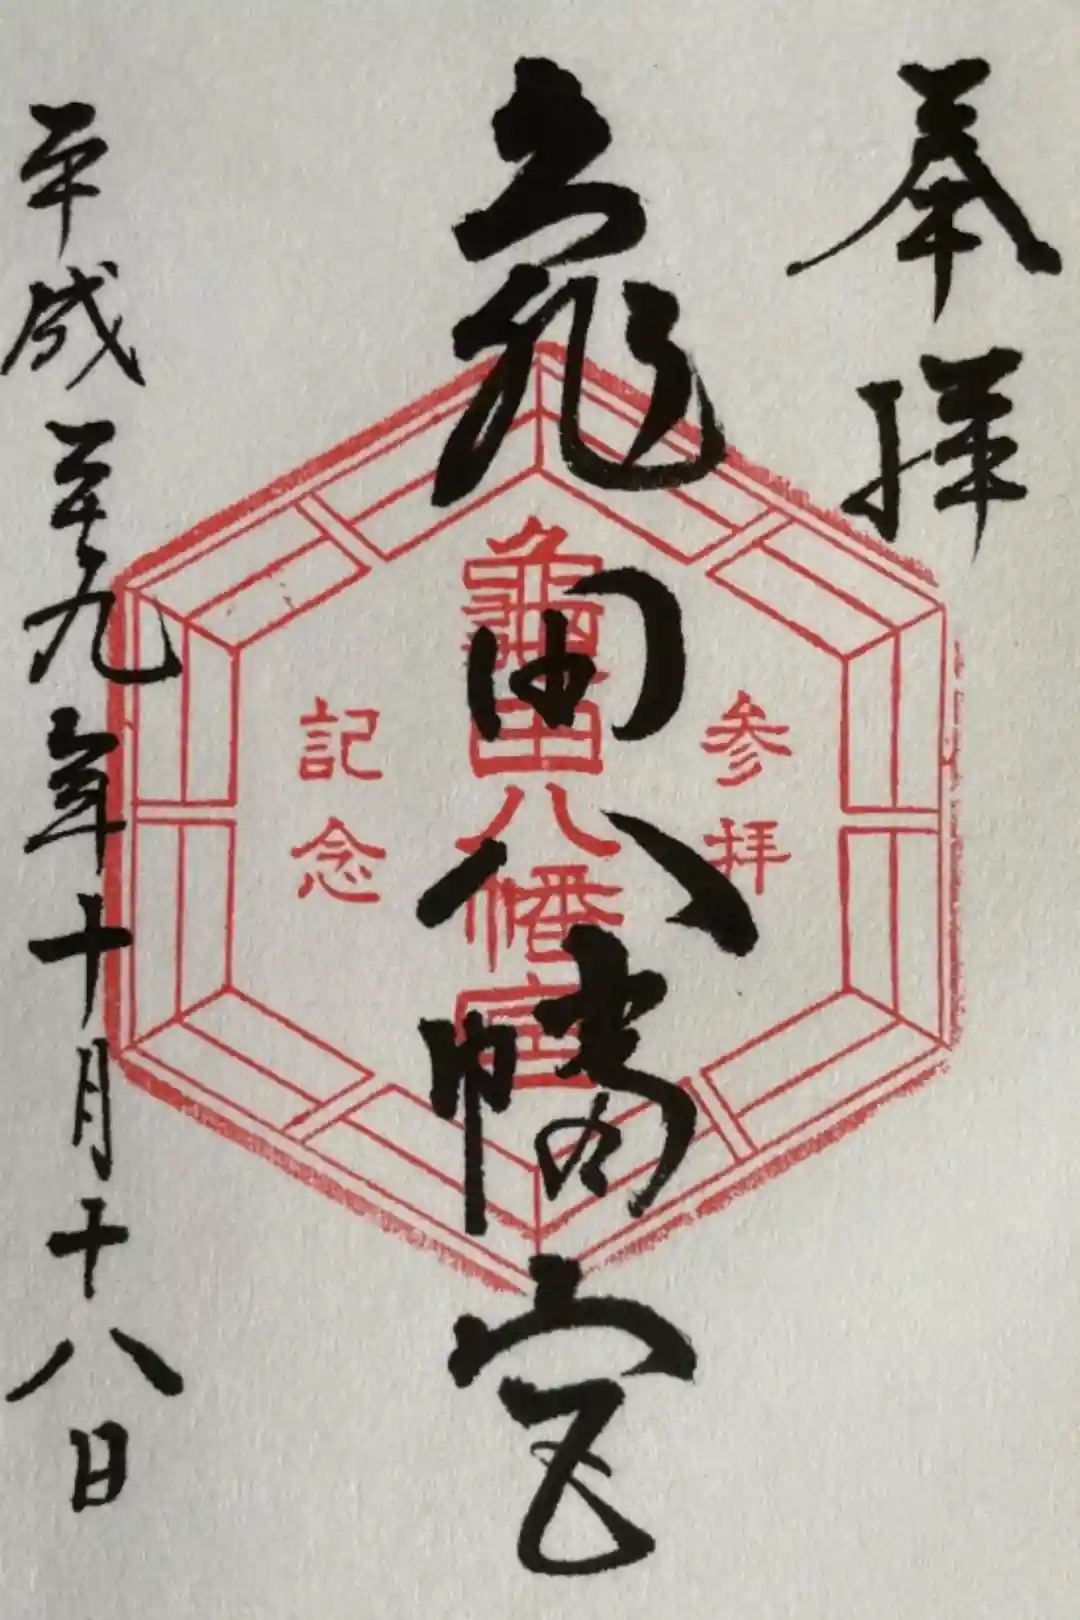 奉拝
亀田八幡宮
平成二十九年十月十八日
参拝
龜田八幡宮
記念